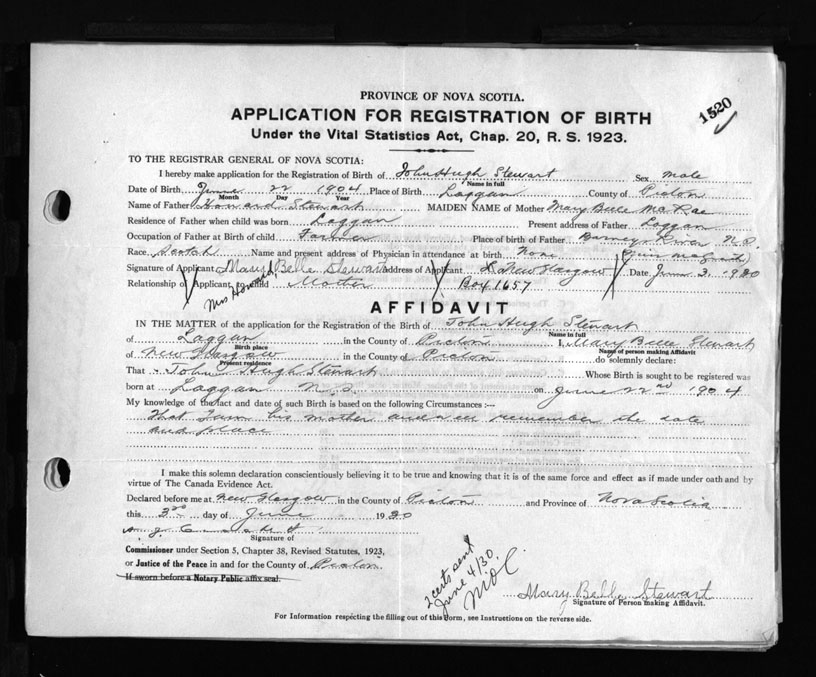 PROVINCE OF NOVA SCOTIA.
1520
APPLICATION FOR REGISTRATION OF BIRTH
Under the Vital Statistics Act, Chap. 20, R. S. 1923.
TO THE REGISTRAR GENERAL OF NOVA SCOTIA:
I hereby make application for the Registration of Birth of John Hugh Stewart Sex male
Name in full
Date of Birth June 22 1904 Place of Birth Laggan County of Pictou
Month Day Year
Name of Father Howard Stewart MAIDEN NAME of Mother Mary Belle McRae
Residence of Father when child was born Laggan Present address of Father Laggan
Occupation of Father at Birth of child Farmer Place of birth of Father Barneys River N.S.
Race Scotch Name and present address of Physician in attendance at birth None
Signature of Applicant Mary Belle Stewart Address of Applicant New Glasgow Date June 3 1930
Relationship of Applicant child Mother Box 1657
Mrs Howard
AFFIDAVIT
IN THE MATTER of the application for the Registration of the Birth of John Hugh Stewart
Name in full
of Laggan in the County of Pictou I, Mary Belle Stewart
Birth place Name of person making Affidavit
of New Glasgow in the County of Pictou do solemnly declare:
Present residence
That John Hugh Stewart Whose Birth is sought to be registered was
born at Laggan N.S. on June 22nd 1904
My knowledge of the fact and date of such Birth is based on the following Circumstances :—
That I am his mother and well remember the date
and place
I make this solemn declaration conscientiously believing it to be true and knowing that it is of the same force and effect as if made under oath and by
virtue of The Canada Evidence Act.
Declared before me at New Glasgow in the County of Pictou and Province of Nova Scotia
this 3rd day of June 1930
Signature of
Commissioner under Section 5, Chapter 38, Revised Statutes, 1923,
or Justice of the Peace in and for the County of Pictou
If sworn before a Notary Public affix seal.
2 certs sent
June 4/30.
Mary Belle Stewart
Signature of Person making Affidavit.
For Information respecting the filling out of this Form, see Instructions on the reverse side.